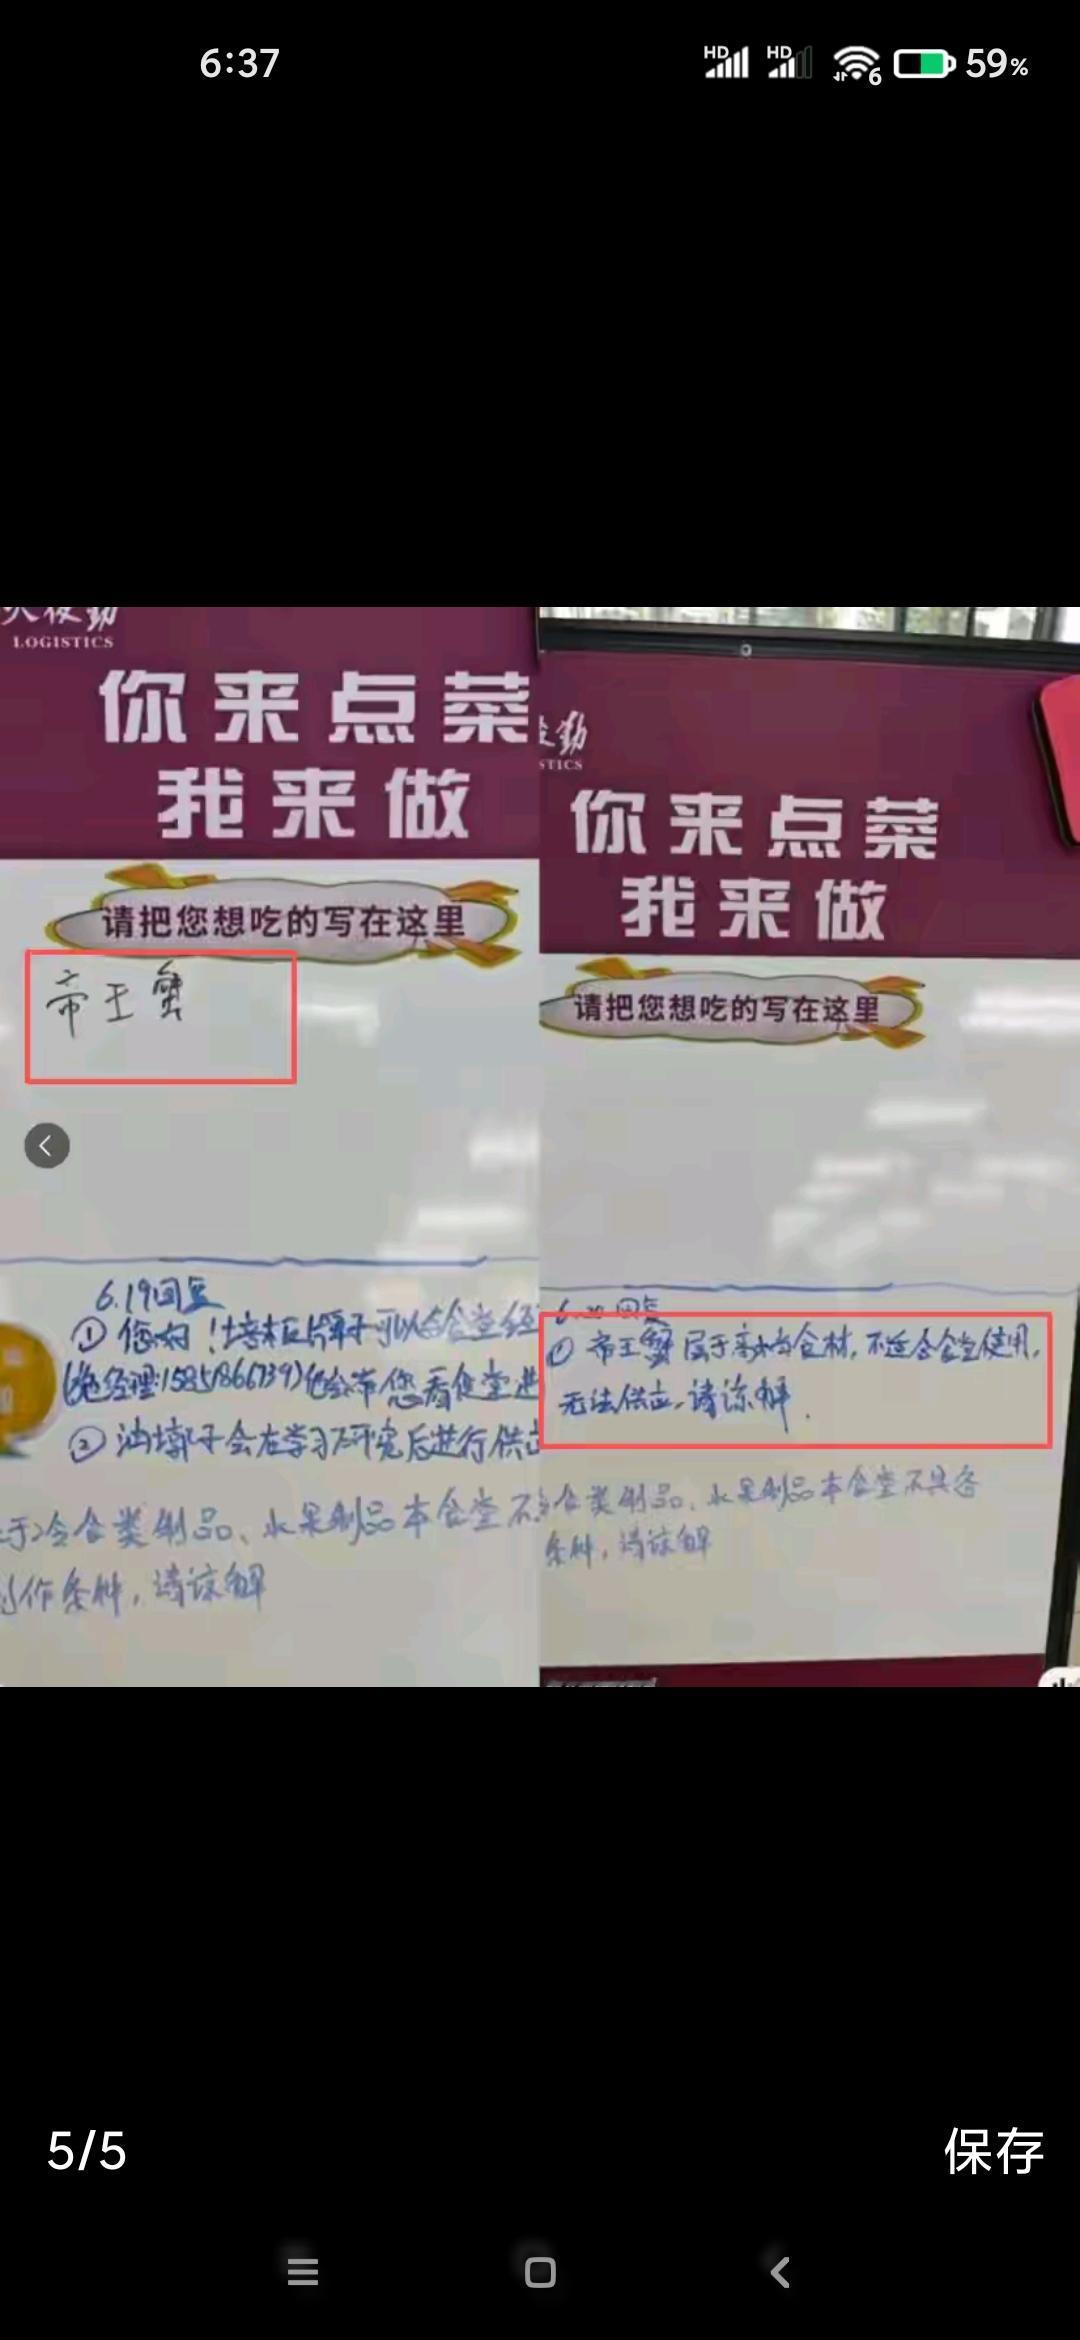 6:37
HD
HD
6
59%
LOGISTICS
你来点菜
我来做
请把您想吃的写在这里
帝王蟹
6.19回复
①您好！
可以与食堂经
经理:15851866739)
②油墩子会在学习研究后进行供应
冷食类制品、水果制品本食堂不
制作条件，请谅解
STICS
你来点菜
我来做
请把您想吃的写在这里
回复
①帝王蟹属于高档食材，不适合食堂使用，
无法供应，请谅解.
冷食类制品、水果制品本食堂不具备
条件，请谅解
5/5
保存